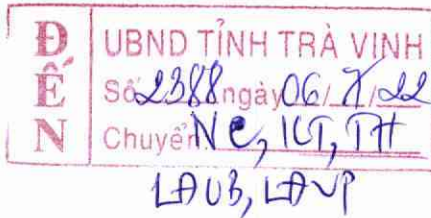 ĐẾN
UBND TỈNH TRÀ VINH
Số 2388 ngày 06/ /22
Chuyển NC, KT, TH
LĐUB, LĐVP